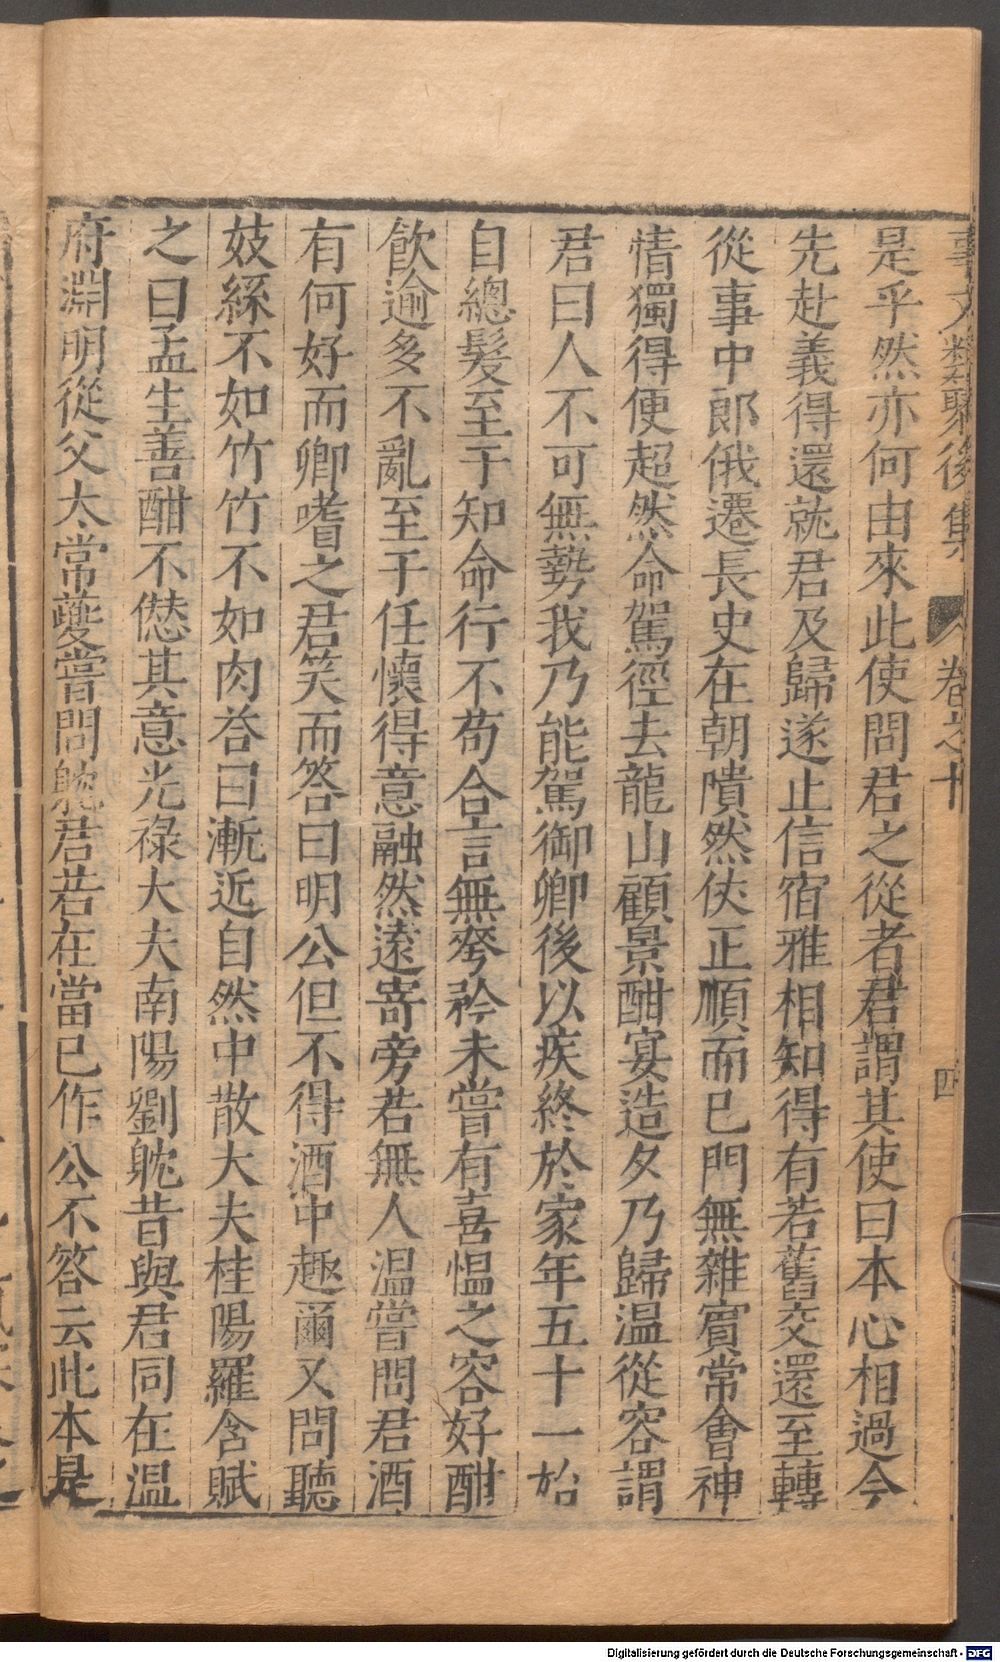 事文類聚後集 卷之十 四
是乎然亦何由來此使問君之從者君謂其使曰本心相過今
先赴義得還就君及歸遂止信宿雅相知得有若舊交還至轉
從事中郎俄遷長史在朝隤然伏正順而已門無雜賓常會神
情獨得便超然命駕徑去龍山顧景酣宴造夕乃歸温從容謂
君曰人不可無勢我乃能駕御卿後以疾終於家年五十一始
自總髮至于知命行不苟合言無夸矜未嘗有喜愠之容好酣
飲逾多不亂至于任懷得意融然遠寄旁若無人温嘗問君酒
有何好而卿嗜之君笑而答曰明公但不得酒中趣爾又問聽
妓絲不如竹竹不如肉荅曰漸近自然中散大夫桂陽羅含賦
之曰孟生善酣不愆其意光祿大夫南陽劉躭昔與君同在温
府淵明從父太常夔嘗問躭君若在當已作公不答云此本是
Digitalisierung gefördert durch die Deutsche Forschungsgemeinschaft - DFG